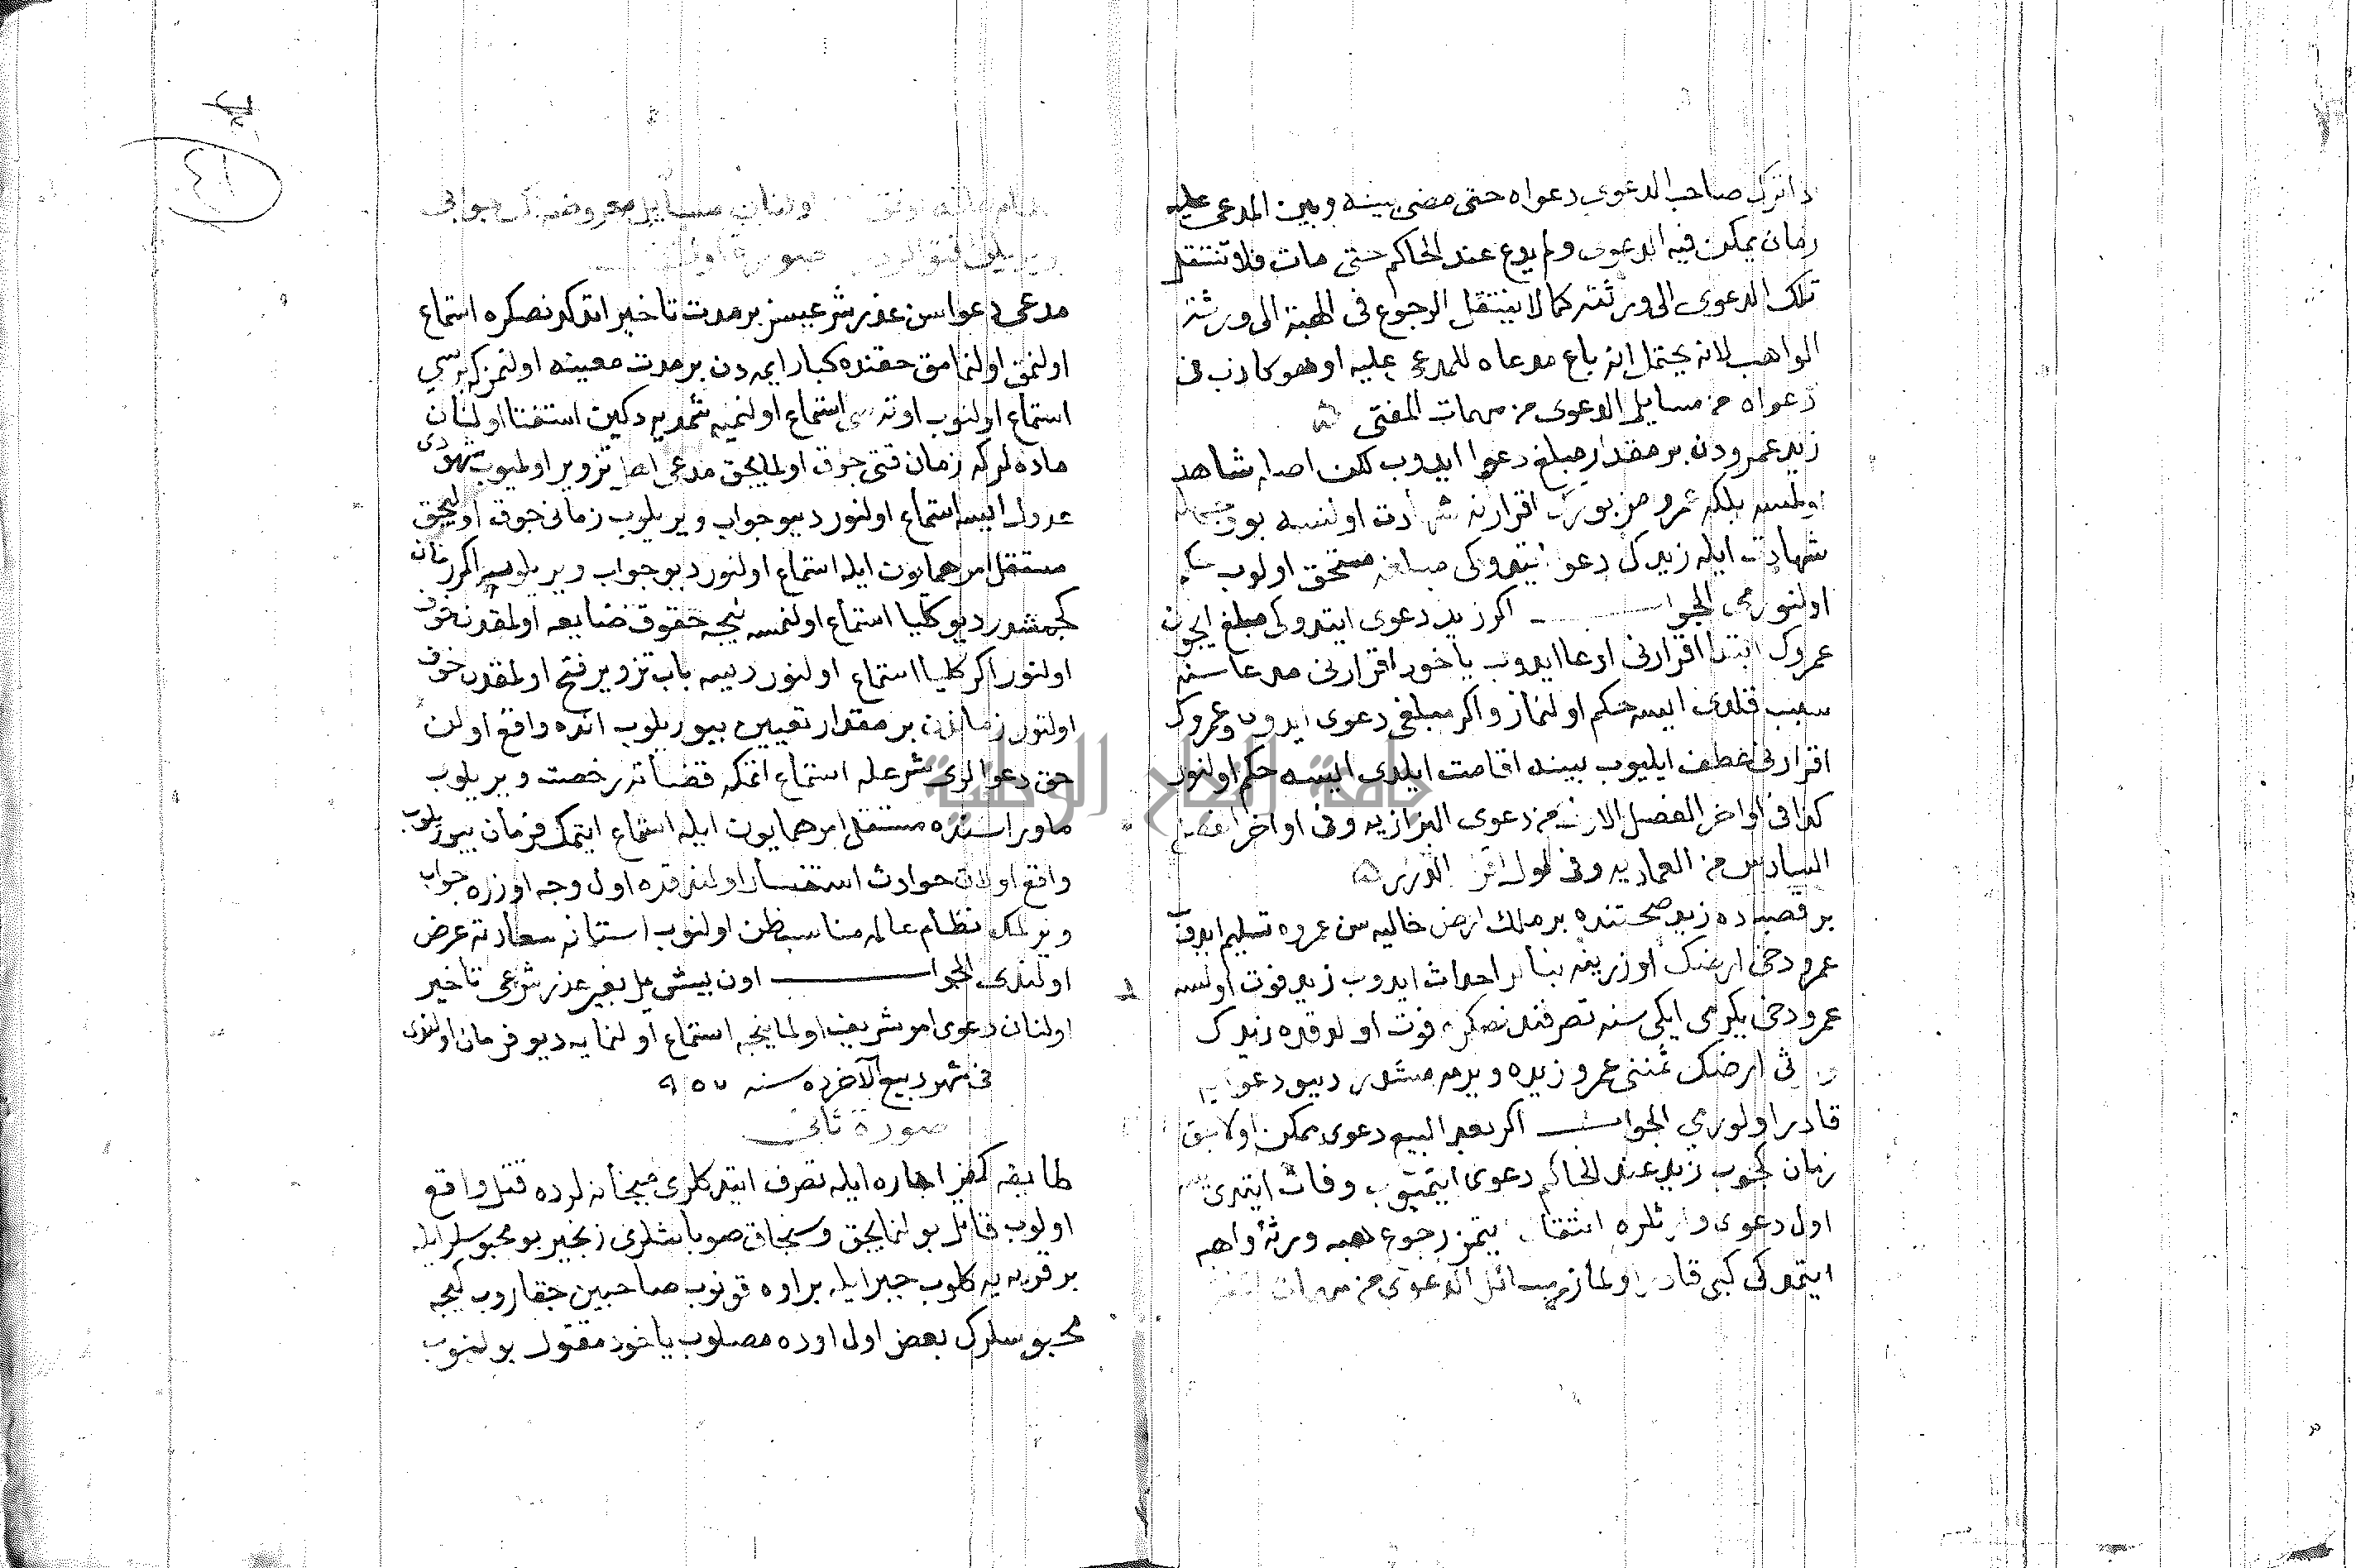 اذا ترك صاحب الدعوى دعواه حتى مضى بينه وبين المدعى عليه
زمان يمكن فيه الدعوى ولم يدع عند الحاكم حتى مات فلا تنتقل
تلك الدعوى الى ورثته كما لا ينتقل الرجوع فى الهبة الى ورثة
الواهب لانه يحتمل انه باع مدعاه للمدعى عليه او هو كاذب فى
دعواه من مسايل الدعوى من مهمات المفتى
زيد عمرودن بر مقدار مبلغ دعوا ايدوب لكن اصله شاهد
اولمسه بلكه عمرو مزبورك اقرارنه شهادت اولنسه بو
شهادت ايله زيدك دعوا ايتدوكى مبلغه مستحق اولوب حكم
اولنورمى الجواب اكر زيد دعوى ايتدوكى مبلغ ايچون
عمروك ابتدا اقرارنى ادعا ايدوب ياخود اقرارنى مدعاسنه
سبب قلدى ايسه حكم اولنماز واكر مبلغى دعوى ايدوب وعمروك
اقرارنى عطف ايليوب بينه اقامت ايلدى ايسه حكم اولنور
كذا فى اواخر الفصل الاول من دعوى البزازيه وفى اواخر الفصل
السادس من العماديه وفى الدرر
بر قصبه ده زيد صحتنده بر ملك ارض خاليه سن عمروه تسليم ايدوب
عمرو دخى ارضك اوزرينه بنالر احداث ايدوب زيد فوت اولسه
عمرو دخى يكرمى ايكى سنه تصرفندنصكره فوت اولدقده زيدك
وارثى ارضك ثمننى عمرو زيده ويرمه مشدر ديو دعوايه
قادر اولورمى الجواب اكر بعد البيع دعوى ممكن اولاجق
زمان كچوب زيد عند الحاكم دعوى ايتميوب وفات ايتدى ايسه
اول دعوى وارثلره انتقال ايتمز رجوع هبه ورثه واهبه
ايتمدكى كبى قادر اولماز مسائل الدعوى من مهمات المفتى
٤١
اولنان مسايل معروضه نك جوابى
صورة اولى
مدعى دعواسن عذر شرعيسز بر مدت تاخير اتدكدنصكره استماع
اولنمق اولنمامق حقنده كبار ايمه دن بر مدت معينه اولنمزكه برسى
استماع اولنوب اوته سى استماع اولنميه شمديه دكين استفتا اولنان
ماده لركه زمان قتى چوق اولميجق مدعى اهل تزوير اولميوب شهودى
عدول ايسه استماع اولنور ديو جواب ويريلوب زمانى چوق اوليجق
مستقل امر همايون ايله استماع اولنور ديو جواب ويريلوب اكر زمان
كچمشدر ديو كليا استماع اولنمسه نيجه حقوق ضايعه اولمقدن خوف
اولنور اكر كليا استماع اولنور دينه باب تزوير فتح اولمقدن خوف
اولنور زماندن بر مقدار تعيين بيوريلوب انده واقع اولن
حق دعوالرى شرعله استماع اتمكه قضاته رخصت ويريلوب
ماوراسنده مستقل امر همايون ايله استماع ايتمك فرمان بيوريلوب
واقع اولان حوادث استفسار اولندقده اول وجه اوزره جواب
ويرلمك نظام عالمه مناسب ظن اولنوب استانه سعادته عرض
اولندى الجواب اون بيش ييل بغير عذر شرعى تاخير
اولنان دعوى امر شريف اولماينجه استماع اولنمايه ديو فرمان اولندى
فى شهر ربيع الآخر ده سنه ٩٥٧
صورة ثانى
طايفه كفر اجاره ايله تصرف ايتدكلرى ميخانه لرده قتل واقع
اولوب قاتل بولنمايجق وسنجاق صوباشلرى زنجير بو محبوسلر ايله
بر قريه يه كلوب جبر ايله بر اوه قونوب صاحبين چقاروب كيجه
محبوسلرك بعض اول اوده مصلوب ياخود مقتول بولنوب
جامعة النجاح الوطنية